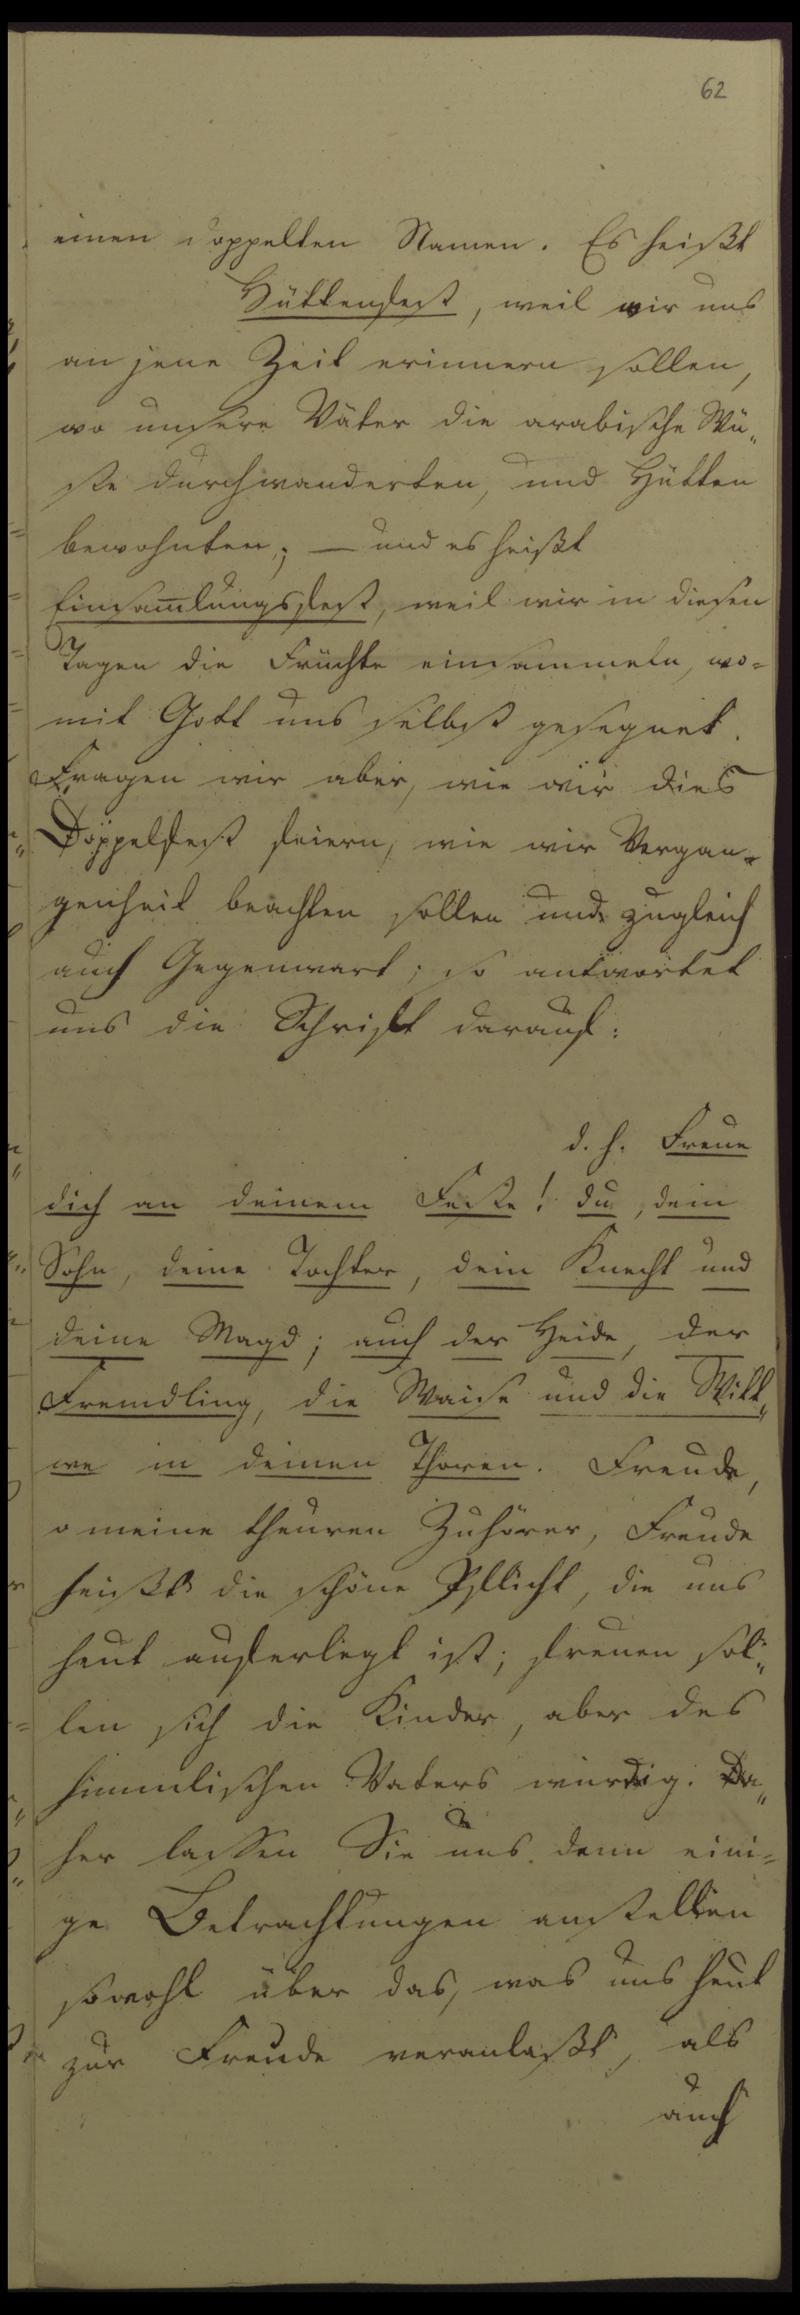 62
einen doppelten Namen. Es heißt
Hüttenfest, weil wir uns
an jene Zeit erinnern sollen,
wo unsere Väter die arabische Wü„
ste durchwanderten, und Hütten
bewohnten; — und es heißt
Einsam̅lungsfest, weil wir in diesen
Tagen die Früchte einsammeln, wo=
mit Gott uns selbst gesegnet.
Fragen wir aber, wie wir dies
Doppelfest feiern, wie wir Vergan„
genheit beachten sollen und zugleich
auch Gegenwart; so antwortet
uns die Schrift darauf:
d. h. Freue
dich an deinem Feste! du, dein
Sohn, deine Tochter, dein Knecht und
deine Magd; auch der Heide, der
Fremdling, die Waise und die Witt„
we in deinen Thoren. Freude,
o meine theuren Zuhörer, Freude
heißt die schöne Pflicht, die uns
heut auferlegt ist; freuen sol„
len sich die Kinder, aber des
himmlischen Vaters würdig. Da„
her lassen Sie uns denn eini=
ge Betrachtungen anstellen
sowohl über das, was uns heut
zur Freude veranlaßt, als
auch